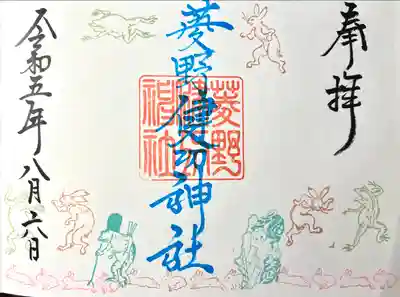 奉拝
菱野健功神社
菱野
神社
令和五年八月六日